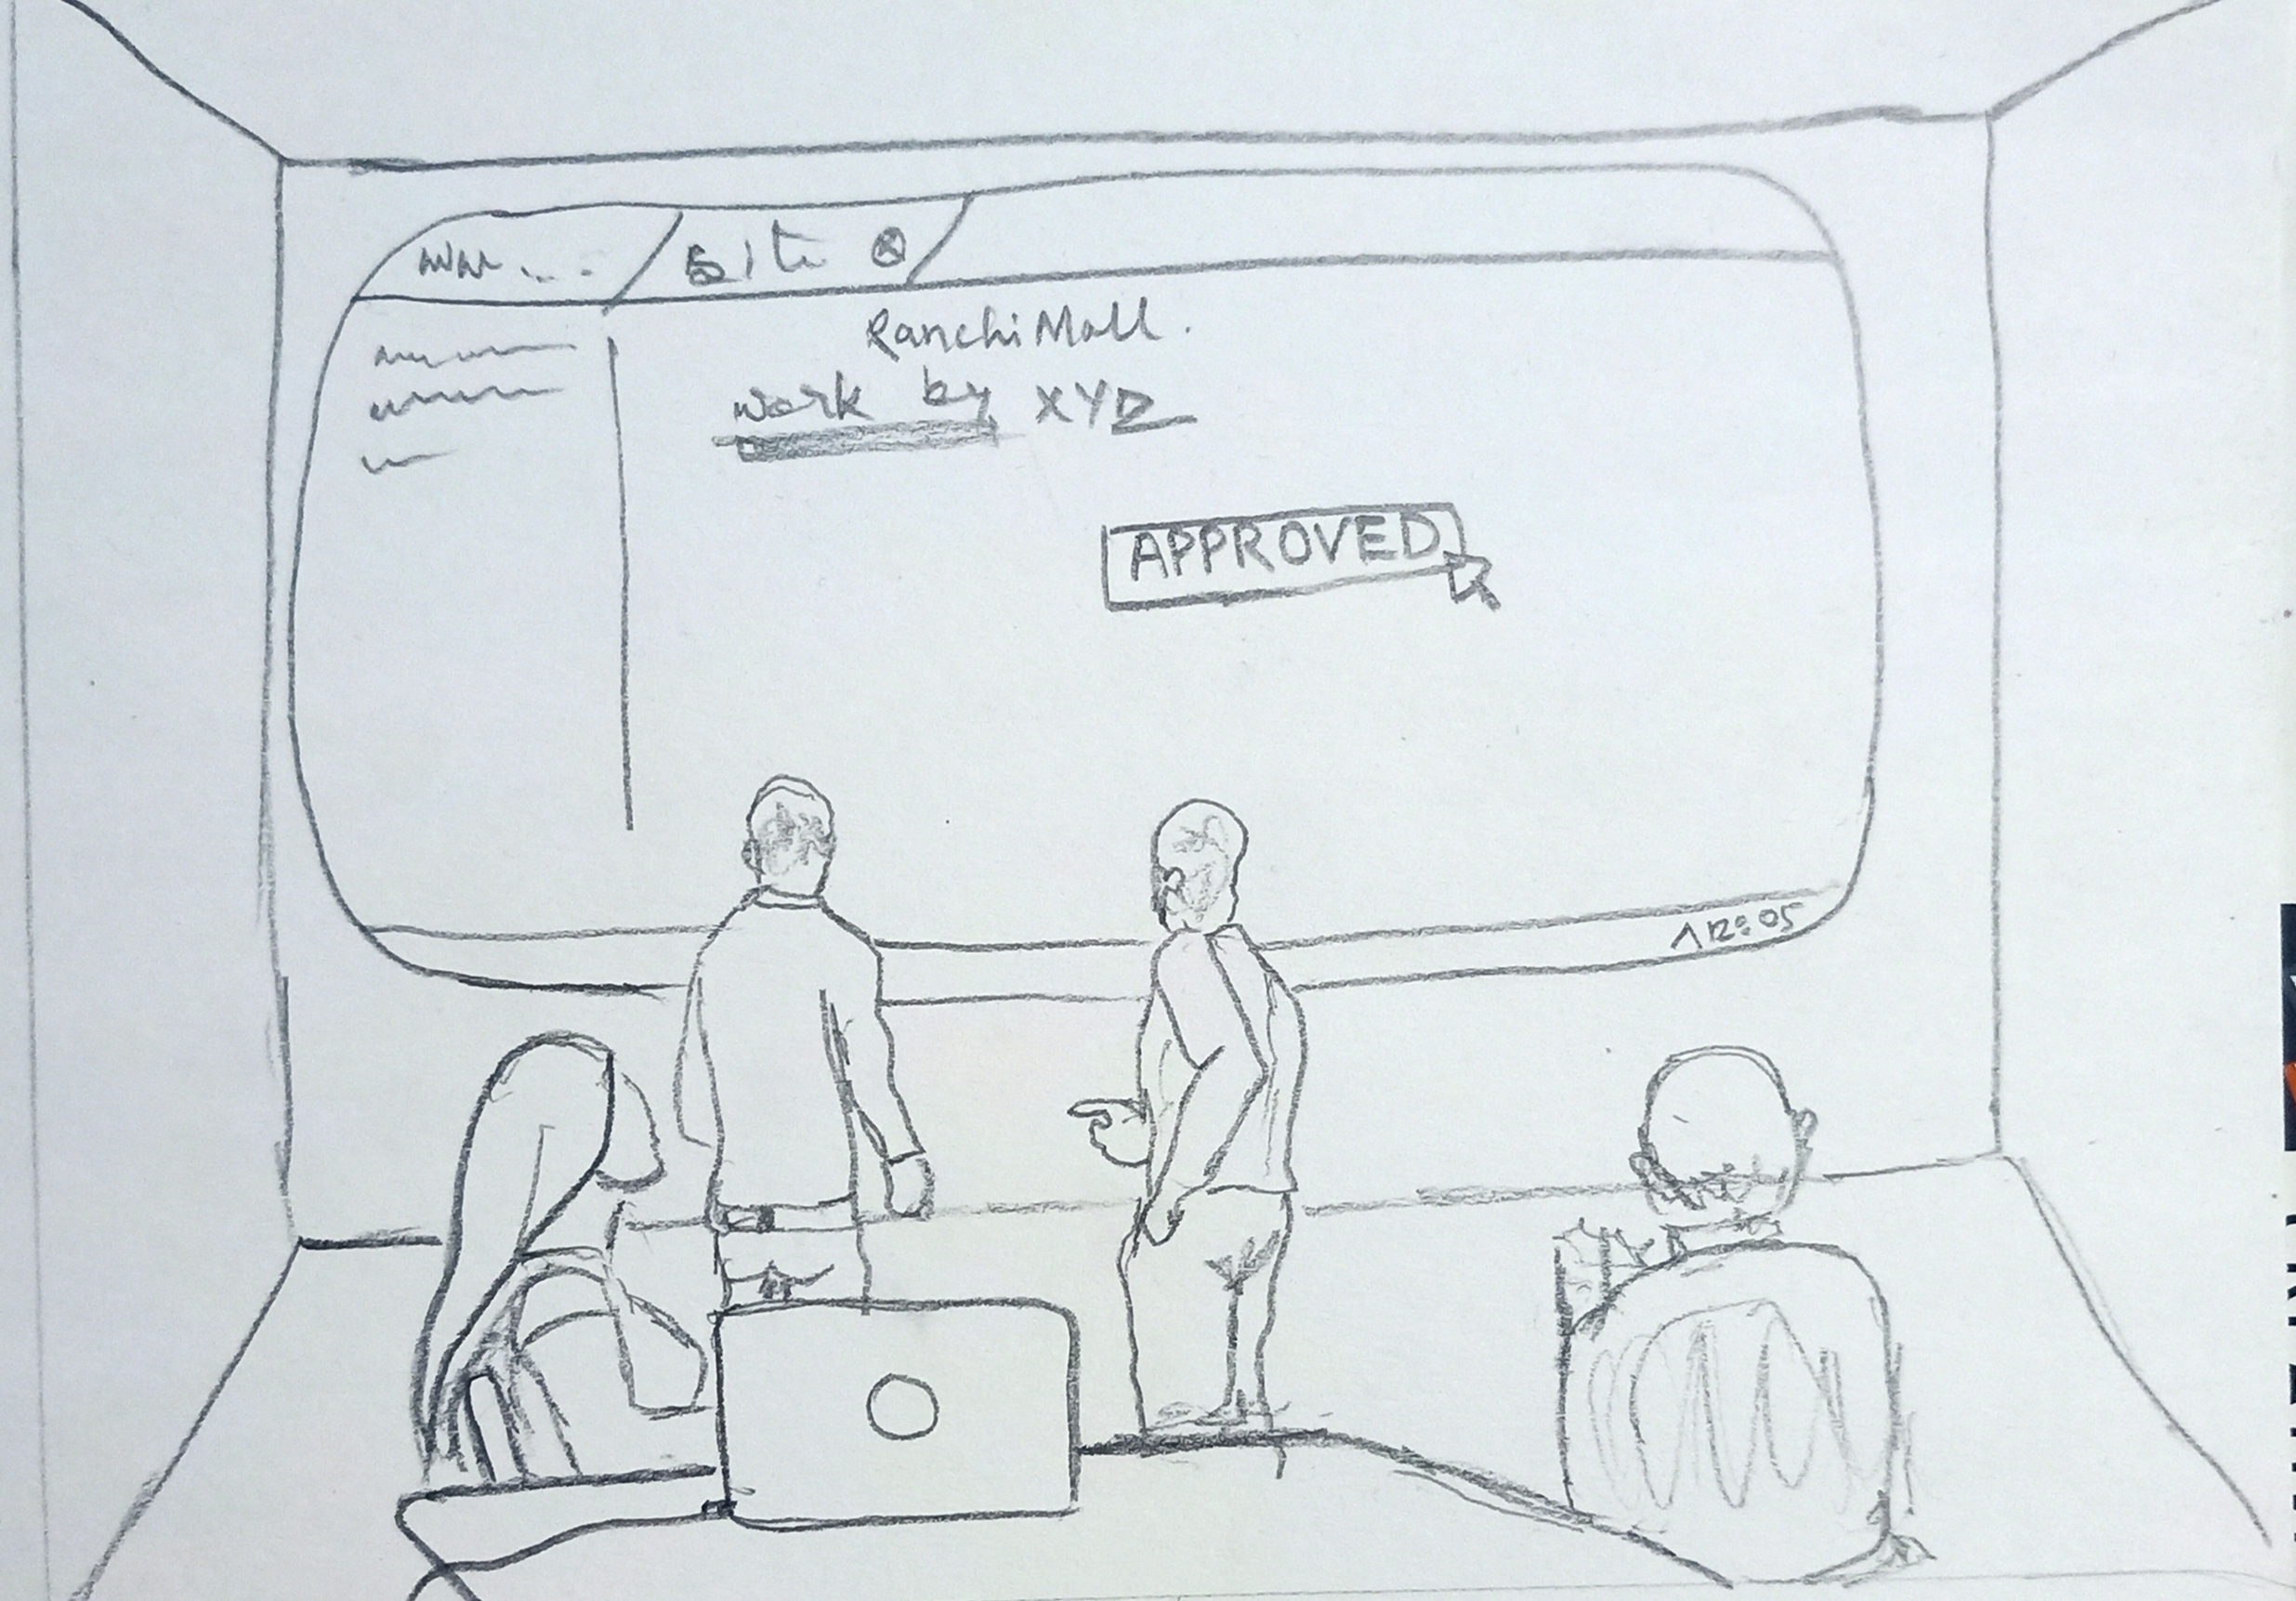 Site
RanchiMall.
work by XYZ
APPROVED
^ 12:05